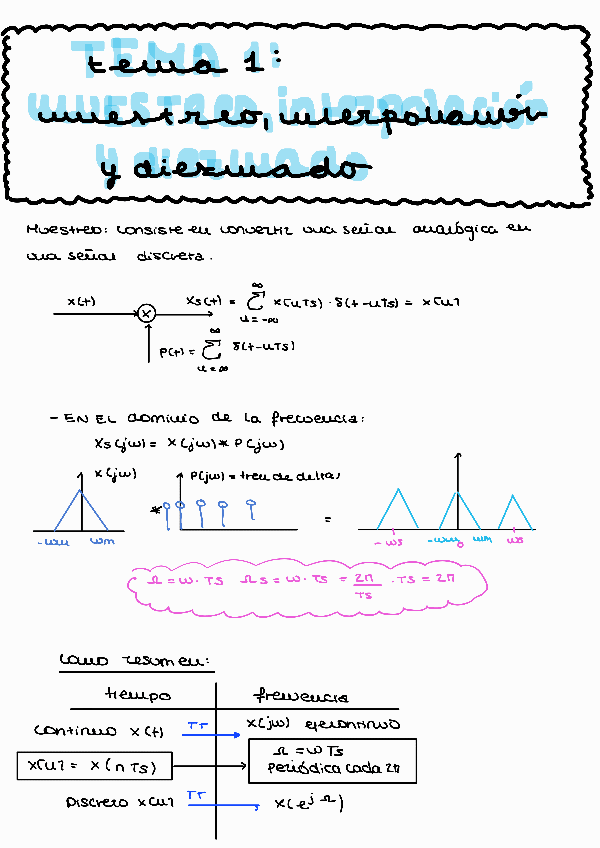 tema 1:
muestreo, interpolación
y diezmado
Muestreo: consiste en convertir una señal analógica en
una señal discreta.
x(t) Xs(t) = ∞ Σ n=-∞ x[nTs) · δ(t-nTs) = x[n]
x
P(t) = ∞ Σ n=∞ δ(t-nTs)
- EN EL dominio de la frecuencia:
Xs(jω) = X(jω) * P(jω)
X(jω) P(jω) = tren de deltas
* =
-ωm ωm -ωs -ωm 0 ωm ωs
Ω = ω · Ts Ωs = ω · Ts = 2π/Ts · Ts = 2π
como resumen:
tiempo frecuencia
continuo x(t) TF X(jω) eje continuo
x[n] = x(nTs) Ω = ω Ts
Periódica cada 2π
Discreto x[n] TF X(e^jΩ)